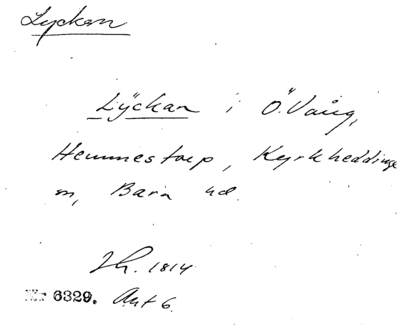 Lyckan
Lÿckan i Ö. Vång,
Hemmestorp, Kyrkheddinge
sn, Bara hd.
Sk. 1814
Nr 6329. Akt 6.